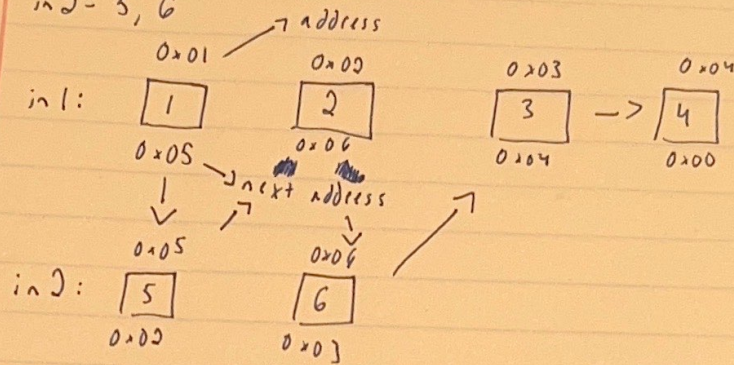 in2 - 5, 6
address
0x01 0x02 0x03 0x04
in1: 1 2 3 -> 4
0x05 0x06 0x04 0x00
next address
0x05 0x06
in2: 5 6
0x02 0x03